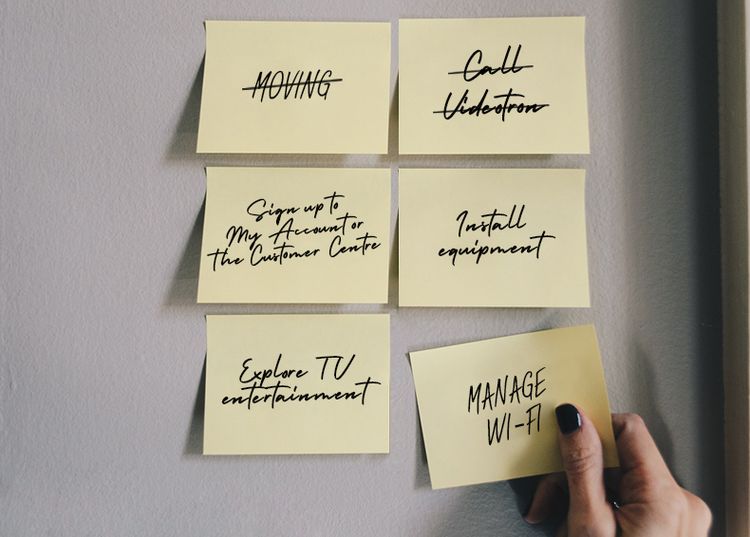 MOVING
Call
Videotron
Sign up to
My Account or
the Customer Centre
Install
equipment
Explore TV
entertainment
MANAGE
WI-FI